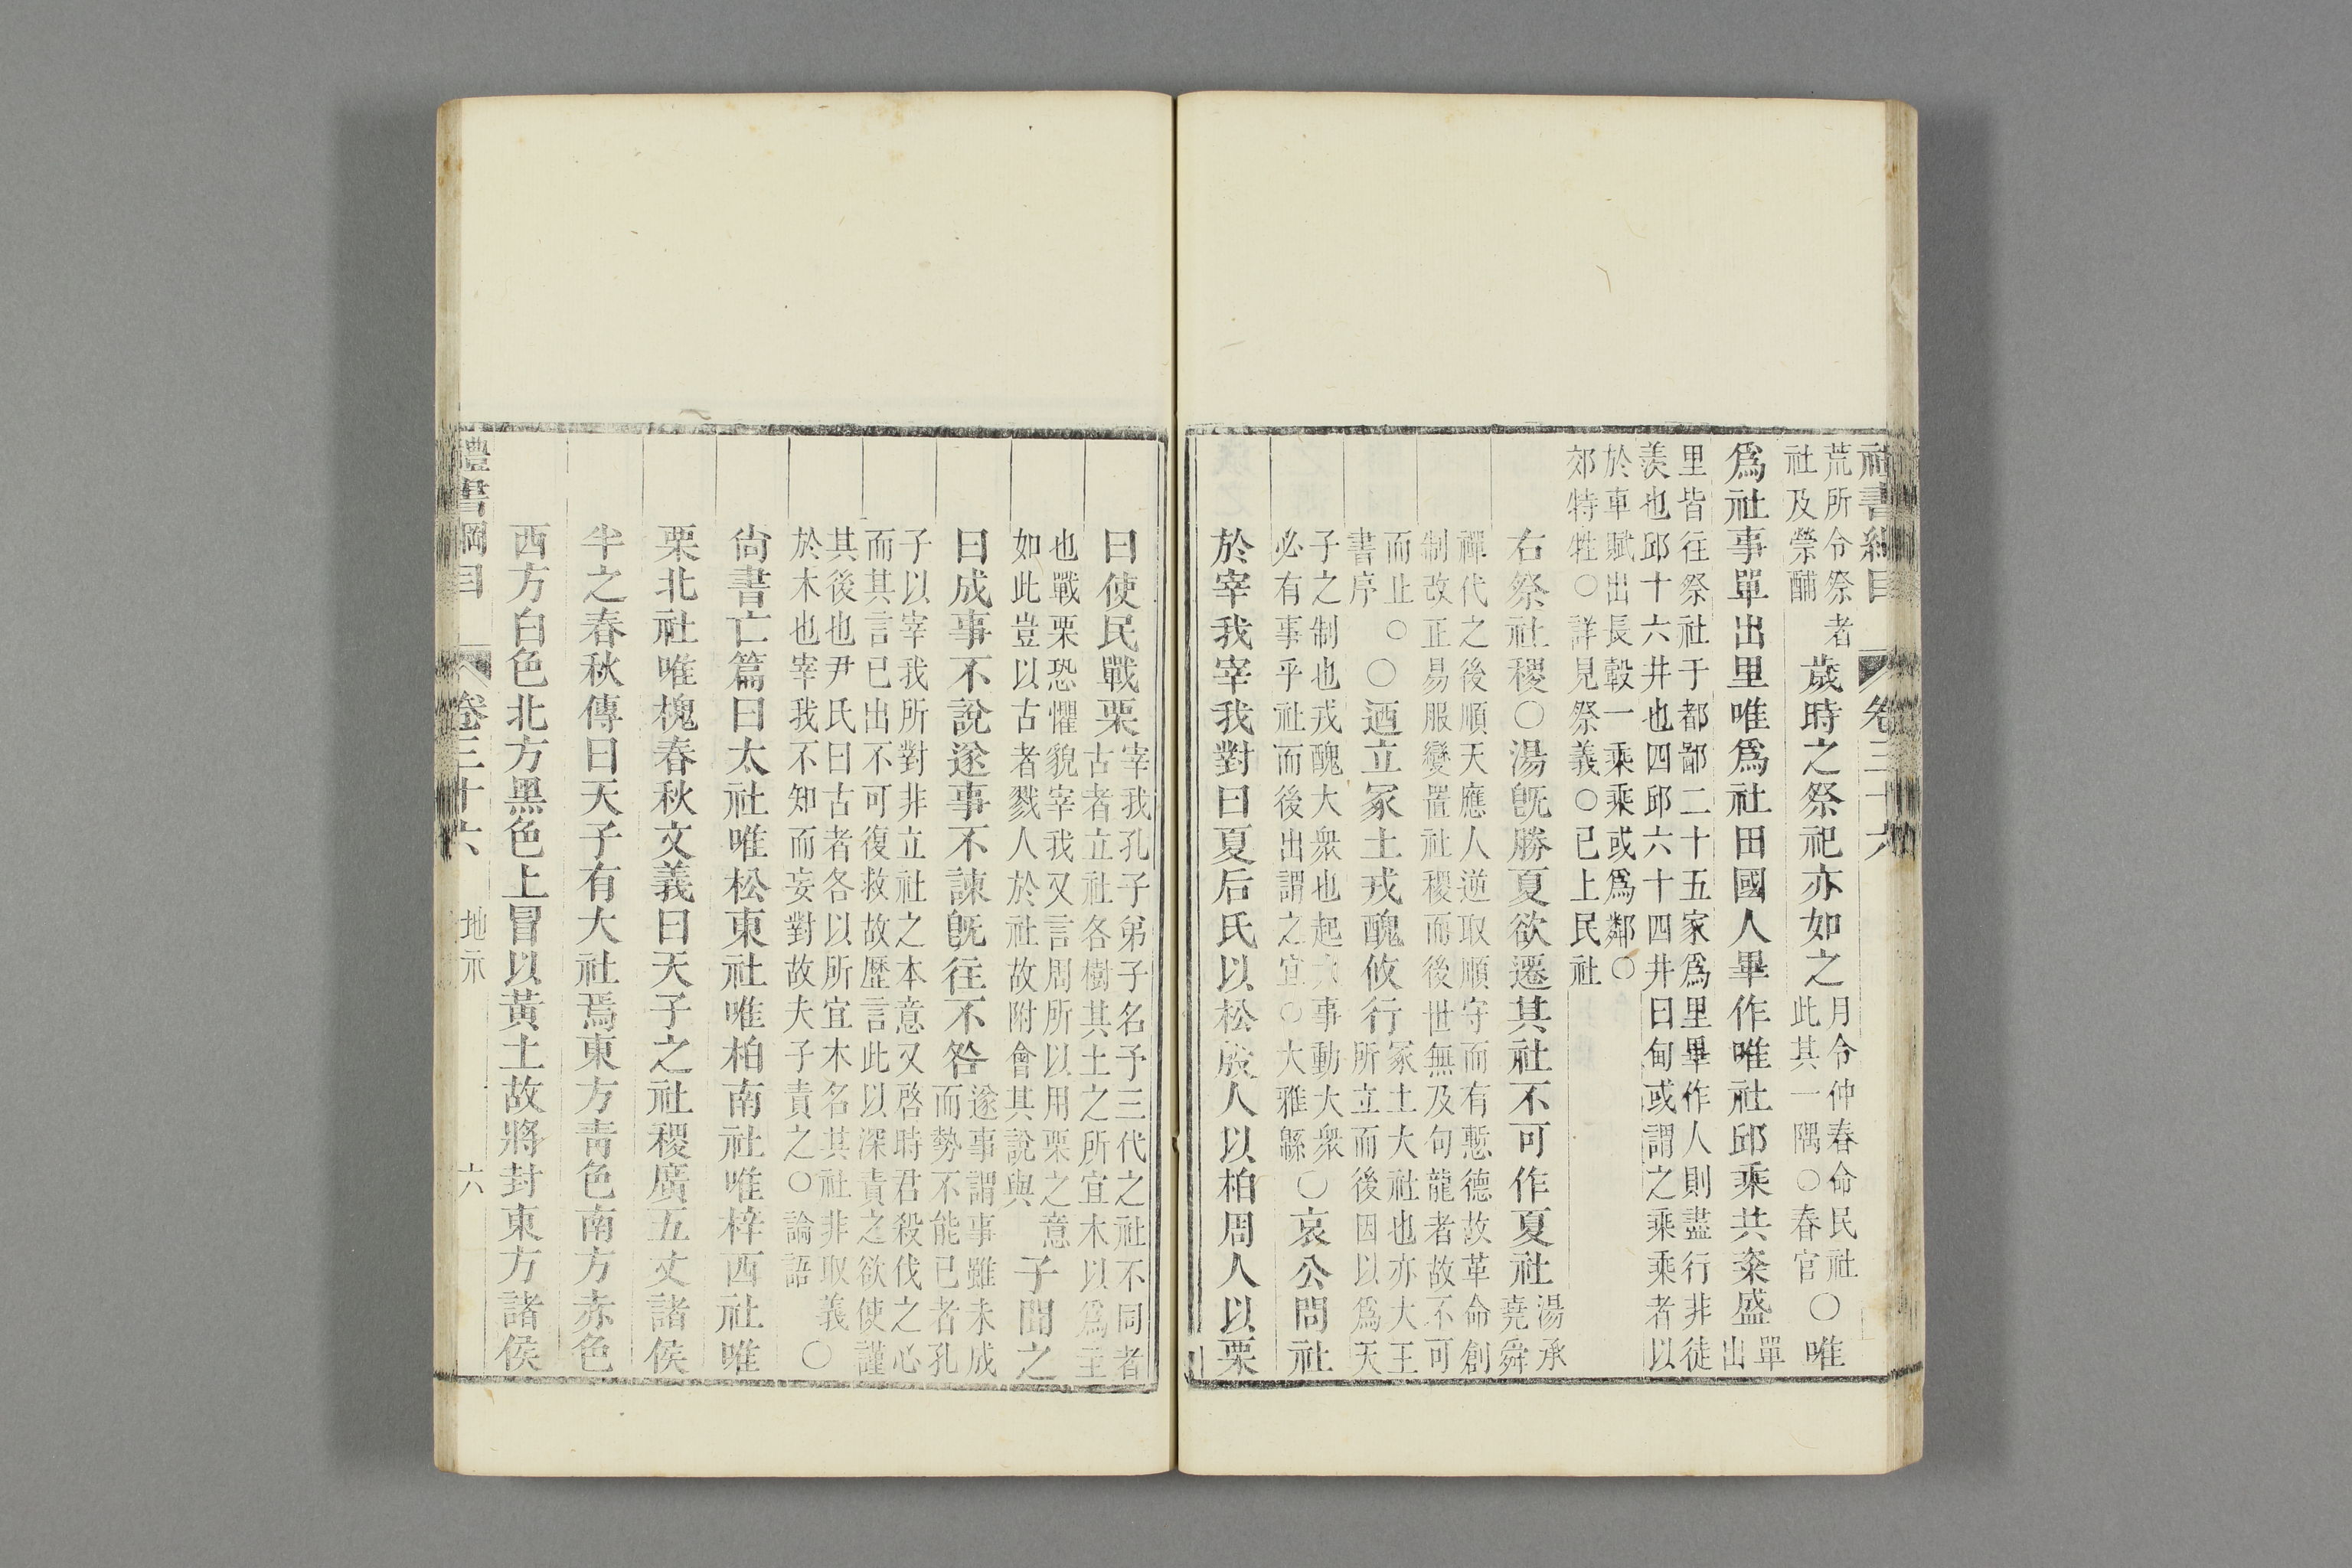 禮書綱目 卷三十六
荒所令祭者
社及禜酺
歲時之祭祀亦如之
月令仲春命民社
此其一隅○春官
○唯
爲社事單出里唯爲社田國人畢作唯社邱乘共粢盛
單
出
里皆往祭社于都鄙二十五家爲里畢作人則盡行非徒
羨也邱十六井也四邱六十四井曰甸或謂之乘乘者以
於車賦出長轂一乘乘或爲鄰○
郊特牲○詳見祭義○已上民社
右祭社稷○湯旣勝夏欲遷其社不可作夏社
湯承
堯舜
禪代之後順天應人逆取順守而有慙德故革命創
制改正易服變置社稷而後世無及句龍者故不可
而止○
書序
○迺立冢土戎醜攸行
冢土大社也亦大王
所立而後因以爲天
子之制也戎醜大衆也起大事動大衆
必有事乎社而後出謂之宜○大雅緜
○哀公問社
於宰我宰我對曰夏后氏以松殷人以柏周人以栗
曰使民戰栗
宰我孔子弟子名予三代之社不同者
古者立社各樹其土之所宜木以爲主
也戰栗恐懼貌宰我又言周所以用栗之意
如此豈以古者戮人於社故附會其說與
子聞之
曰成事不說遂事不諫旣往不咎
遂事謂事雖未成
而勢不能已者孔
子以宰我所對非立社之本意又啓時君殺伐之心
而其言已出不可復救故歷言此以深責之欲使謹
其後也尹氏曰古者各以所宜木名其社非取義
於木也宰我不知而妄對故夫子責之○論語
○
尙書亡篇曰太社唯松東社唯柏南社唯梓西社唯
栗北社唯槐春秋文義曰天子之社稷廣五丈諸侯
半之春秋傳曰天子有大社焉東方青色南方赤色
西方白色北方黑色上冒以黃土故將封東方諸侯
禮書綱目 卷三十六 地示 六